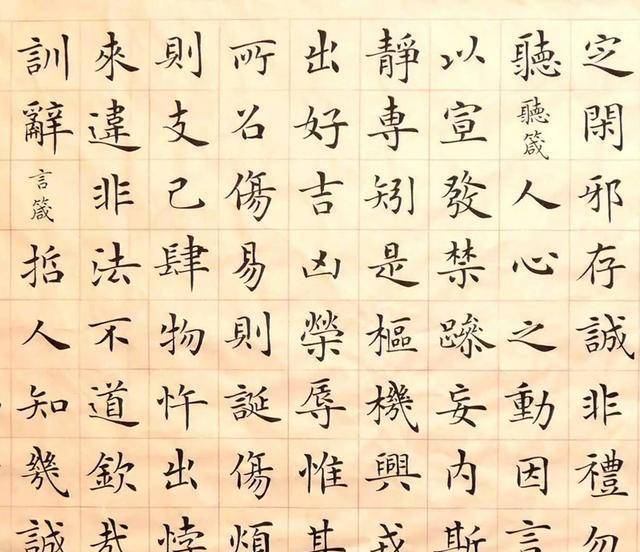 㝎閑邪存誠非禮勿
聽聽箴人心之動因言
以宣發禁躁妄內斯
靜専矧是樞機興戎
出好吉凶榮辱惟其
所召傷易則誕傷煩
則支己肆物忤出悖
來違非法不道欽哉
訓辭言箴哲人知幾誠